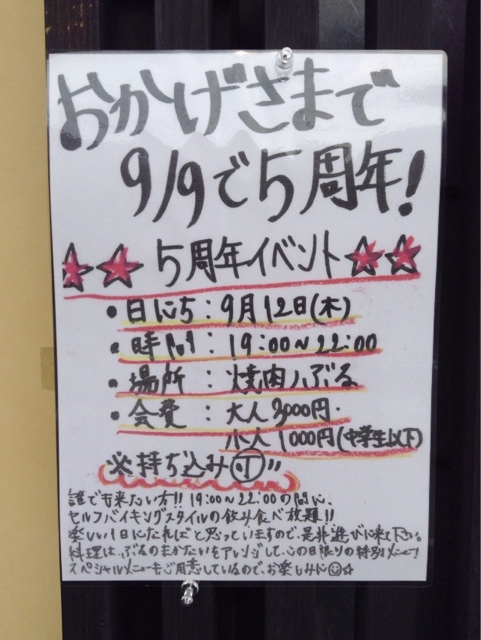 おかげさまで
9/9で5周年!
★★ 5周年イベント ★★
・日にち:9月12日(木)
・時間:19:00~22:00
・場所:焼肉ハぶる
・会費:大人3000円.
小人1000円(中学生以下)
※持ち込み可!!
誰でも来たい方!! 19:00~22:00の間に、
セルフバイキングスタイルの飲み食べ放題!!
楽しい1日になればと思っていますので、是非遊びに来て下さい。
料理は、ぶるのまかないをアレンジして、この日限りの特別メニュー!
スペシャルメニューもご用意しているので、お楽しみに☺☆